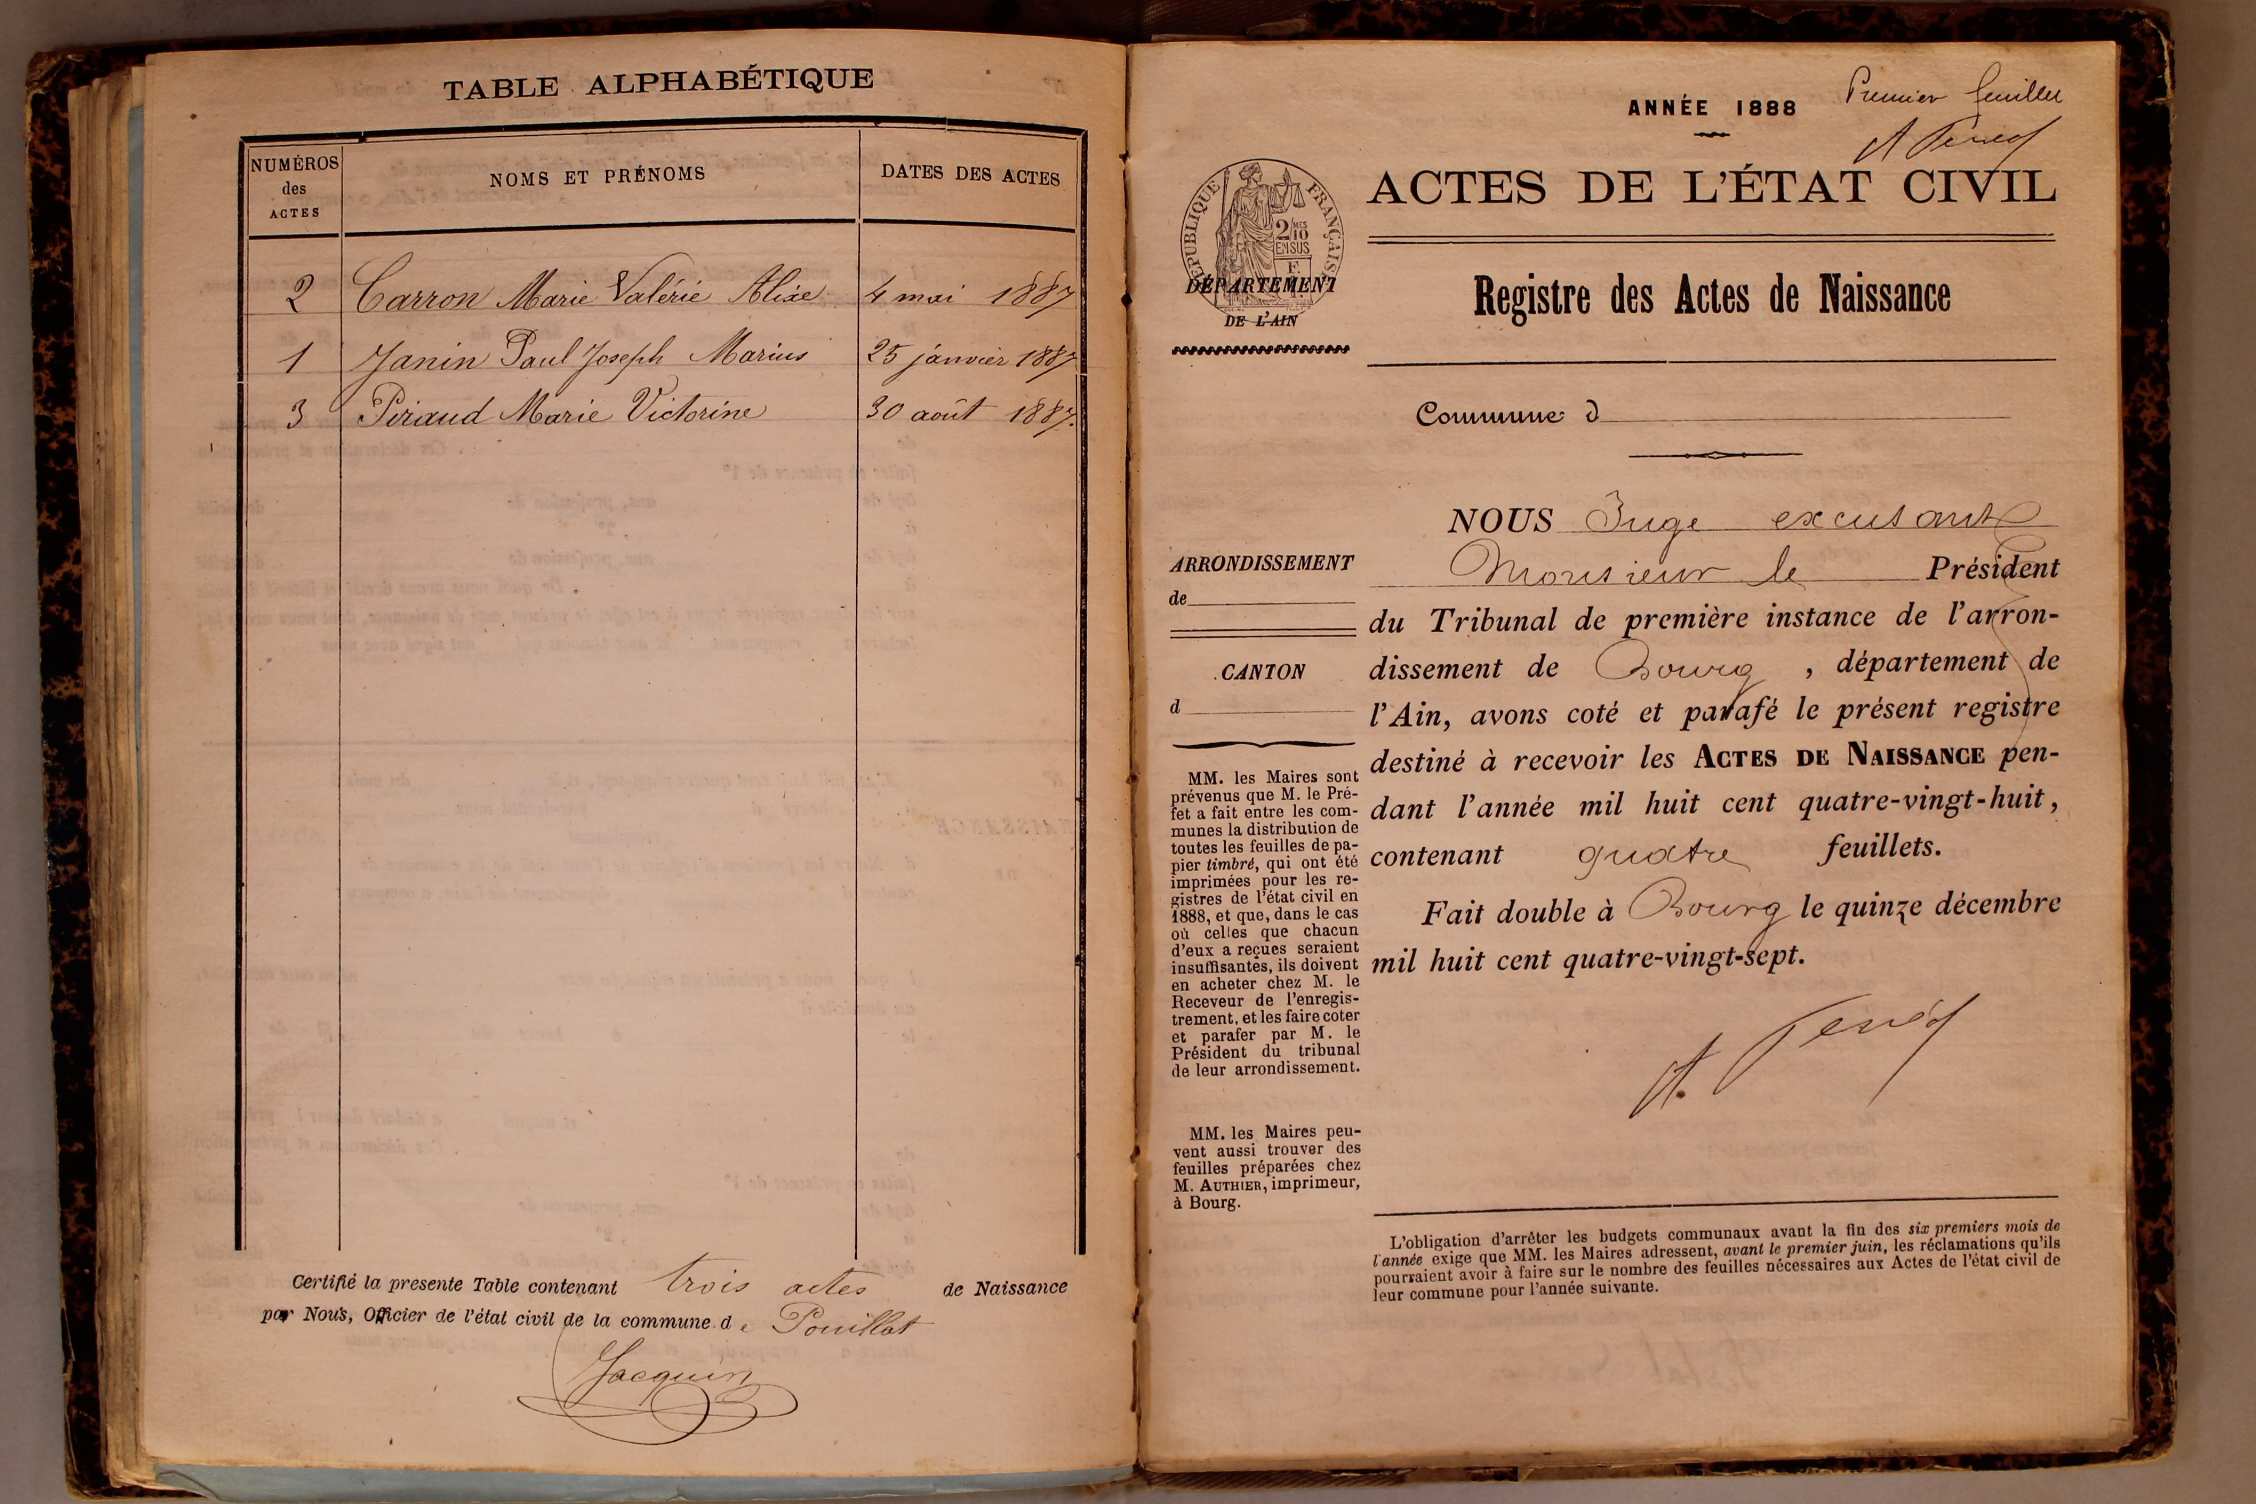 TABLE ALPHABÉTIQUE
NUMÉROS des ACTES
NOMS ET PRÉNOMS
DATES DES ACTES
2 Carron Marie Valérie Alixe 4 mai 1887
1 Janin Paul Joseph Marius 25 janvier 1887
3 Piraud Marie Victorine 30 août 1887.
Certifié la presente Table contenant trois actes de Naissance
par Nous, Officier de l'état civil de la commune de Pouillat
Jacquin
Premier feuillet
ANNÉE 1888
ACTES DE L'ÉTAT CIVIL
RÉPUBLIQUE FRANÇAISE
2/10 MES
EN SUS
DÉPARTEMENT
DE L'AIN
Registre des Actes de Naissance
Commune d
NOUS Juge excusant
Monsieur le Président
du Tribunal de première instance de l'arron-
dissement de Bourg, département de
l'Ain, avons coté et parafé le présent registre
destiné à recevoir les ACTES DE NAISSANCE pen-
dant l'année mil huit cent quatre-vingt-huit,
contenant quatre feuillets.
Fait double à Bourg le quinze décembre
mil huit cent quatre-vingt-sept.
ARRONDISSEMENT
de
CANTON
d
MM. les Maires sont
prévenus que M. le Pré-
fet a fait entre les com-
munes la distribution de
toutes les feuilles de pa-
pier timbré, qui ont été
imprimées pour les re-
gistres de l'état civil en
1888, et que, dans le cas
où celles que chacun
d'eux a reçues seraient
insuffisantes, ils doivent
en acheter chez M. le
Receveur de l'enregis-
trement, et les faire coter
et parafer par M. le
Président du tribunal
de leur arrondissement.
MM. les Maires peu-
vent aussi trouver des
feuilles préparées chez
M. AUTHIER, imprimeur,
à Bourg.
L'obligation d'arrêter les budgets communaux avant la fin des six premiers mois de
l'année exige que MM. les Maires adressent, avant le premier juin, les réclamations qu'ils
pourraient avoir à faire sur le nombre des feuilles nécessaires aux Actes de l'état civil de
leur commune pour l'année suivante.